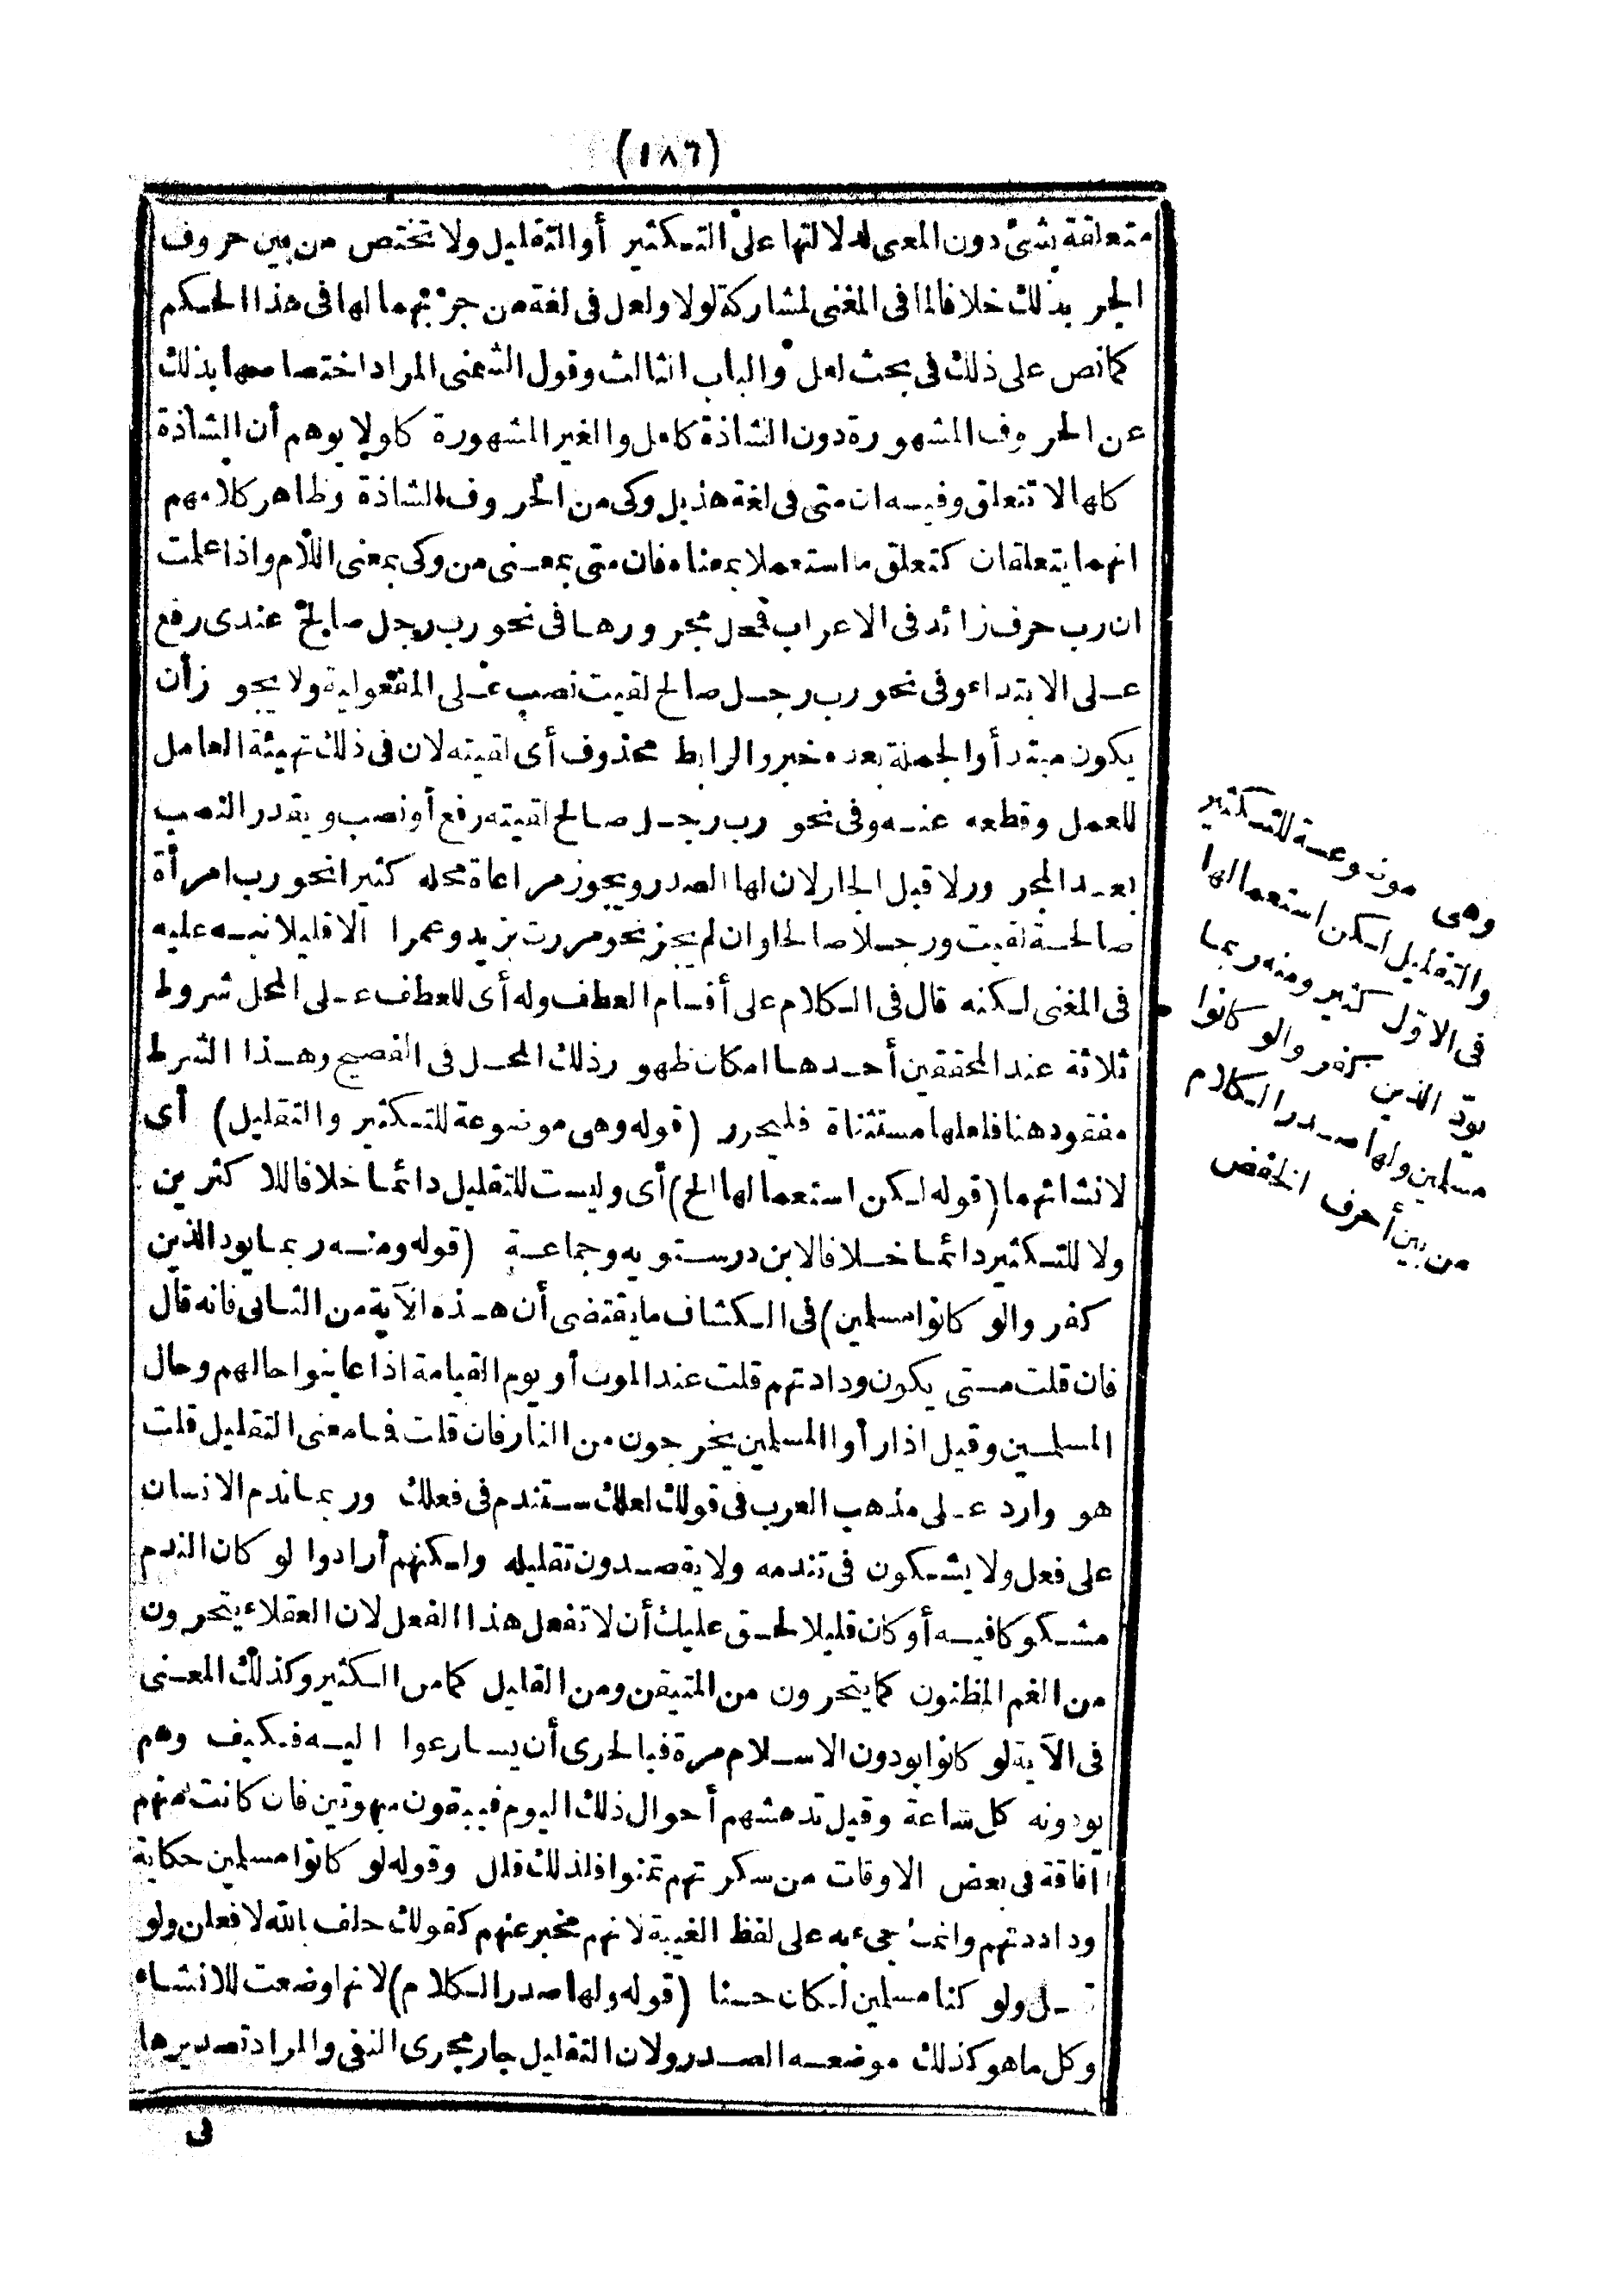 (١٨٦)
متعلقة بشئ دون المعى لدلالتها على التكثير أو التقليل ولا تختص من بين حروف
الجر بذلك خلافا لما فى المغنى لمشاركة لولا ولعل فى لغة من جر بهما لها فى هذا الحكم
كما نص على ذلك فى بحث لعل والباب الثالث وقول الشمنى المراد اختصاصها بذلك
عن الحروف المشهورة دون الشاذة كلعل والغير المشهورة كلولا يوهم أن الشاذة
كلها لا تتعلق وفيه ان متى فى لغة هذيل وكى من الحروف الشاذة وظاهر كلامهم
انهما يتعلقان كتعلق ما استعملا بمعناه فان متى بمعنى من وكى بمعنى اللام واذا علمت
ان رب حرف زائد فى الاعراب فمحل مجرورها فى نحو رب رجل صالح عندى رفع
على الابتداء وفى نحو رب رجل صالح لقيت نصب على المفعولية ولا يجوز أن
يكون مبتدأ والجملة بعده خبر والرابط محذوف أى لقيته لان فى ذلك تهيئة العامل
للعمل وقطعه عنه وفى نحو رب رجل صالح لقيته رفع أو نصب ويقدر النصب
بعد المجرور لا قبل الجار لان لها الصدر ويجوز مراعاة محله كثيرا نحو رب امرأة
صالحة لقيت ورجلا صالحا وان لم يجز نحو مررت بزيد وعمرا الا قليلا نبه عليه
فى المغنى لكنه قال فى الكلام على أقسام العطف وله أى للعطف على المحل شروط
ثلاثة عند المحققين أحدها امكان ظهور ذلك المحل فى الفصيح وهذا الشرط
مفقود هنا فلعلها مستثناة فليحرر (قوله وهى موضوعة للتكثير والتقليل) أى
لانشائهما (قوله لكن استعمالها الخ) أى وليست للتقليل دائما خلافا للاكثرين
ولا للتكثير دائما خلافا لابن درستويه وجماعة (قوله ومنه ربما يود الذين
كفروا لو كانوا مسلمين) فى الكشاف ما يقتضى أن هذه الآية من الثانى فانه قال
فان قلت متى يكون ودادتهم قلت عند الموت أو يوم القيامة اذا عاينوا حالهم وحال
المسلمين وقيل اذا رأوا المسلمين يخرجون من النار فان قلت فما معنى التقليل قلت
هو وارد على مذهب العرب فى قولك لعلك ستندم فى فعلك وربما ندم الانسان
على فعل ولا يشكون فى تندمه ولا يقصدون تقليله ولكنهم أرادوا لو كان الندم
مشكوكا فيه أو كان قليلا لحق عليك أن لا تفعل هذا الفعل لان العقلاء يتحرون
من الغم المظنون كما يتحرون من المتيقن ومن القليل كما من الكثير وكذلك المعنى
فى الآية لو كانوا يودون الاسلام مرة فبالحرى أن يسارعوا اليه فكيف وهم
يودونه كل ساعة وقيل تدهشهم أحوال ذلك اليوم فيبقون مبهوتين فان كانت منهم
افاقة فى بعض الاوقات من سكرتهم تمنوا فلذلك قلل وقوله لو كانوا مسلمين حكاية
ودادتهم وانما جىء به على لفظ الغيبة لانهم مخبر عنهم كقولك حلف بالله لافعلن ولو
قيل ولو كنا مسلمين لكان حسنا (قوله ولها صدر الكلام) لانها وضعت للانشاء
وكل ما هو كذلك موضعه الصدر ولان التقليل جار مجرى النفى والمراد تصديرها
فى
وهى موضوعة للتكثير
والتقليل لكن استعمالها
فى الاول كثير ومنه ربما
يود الذين كفروا لو كانوا
مسلمين ولها صدر الكلام
من بين أحرف الخفض